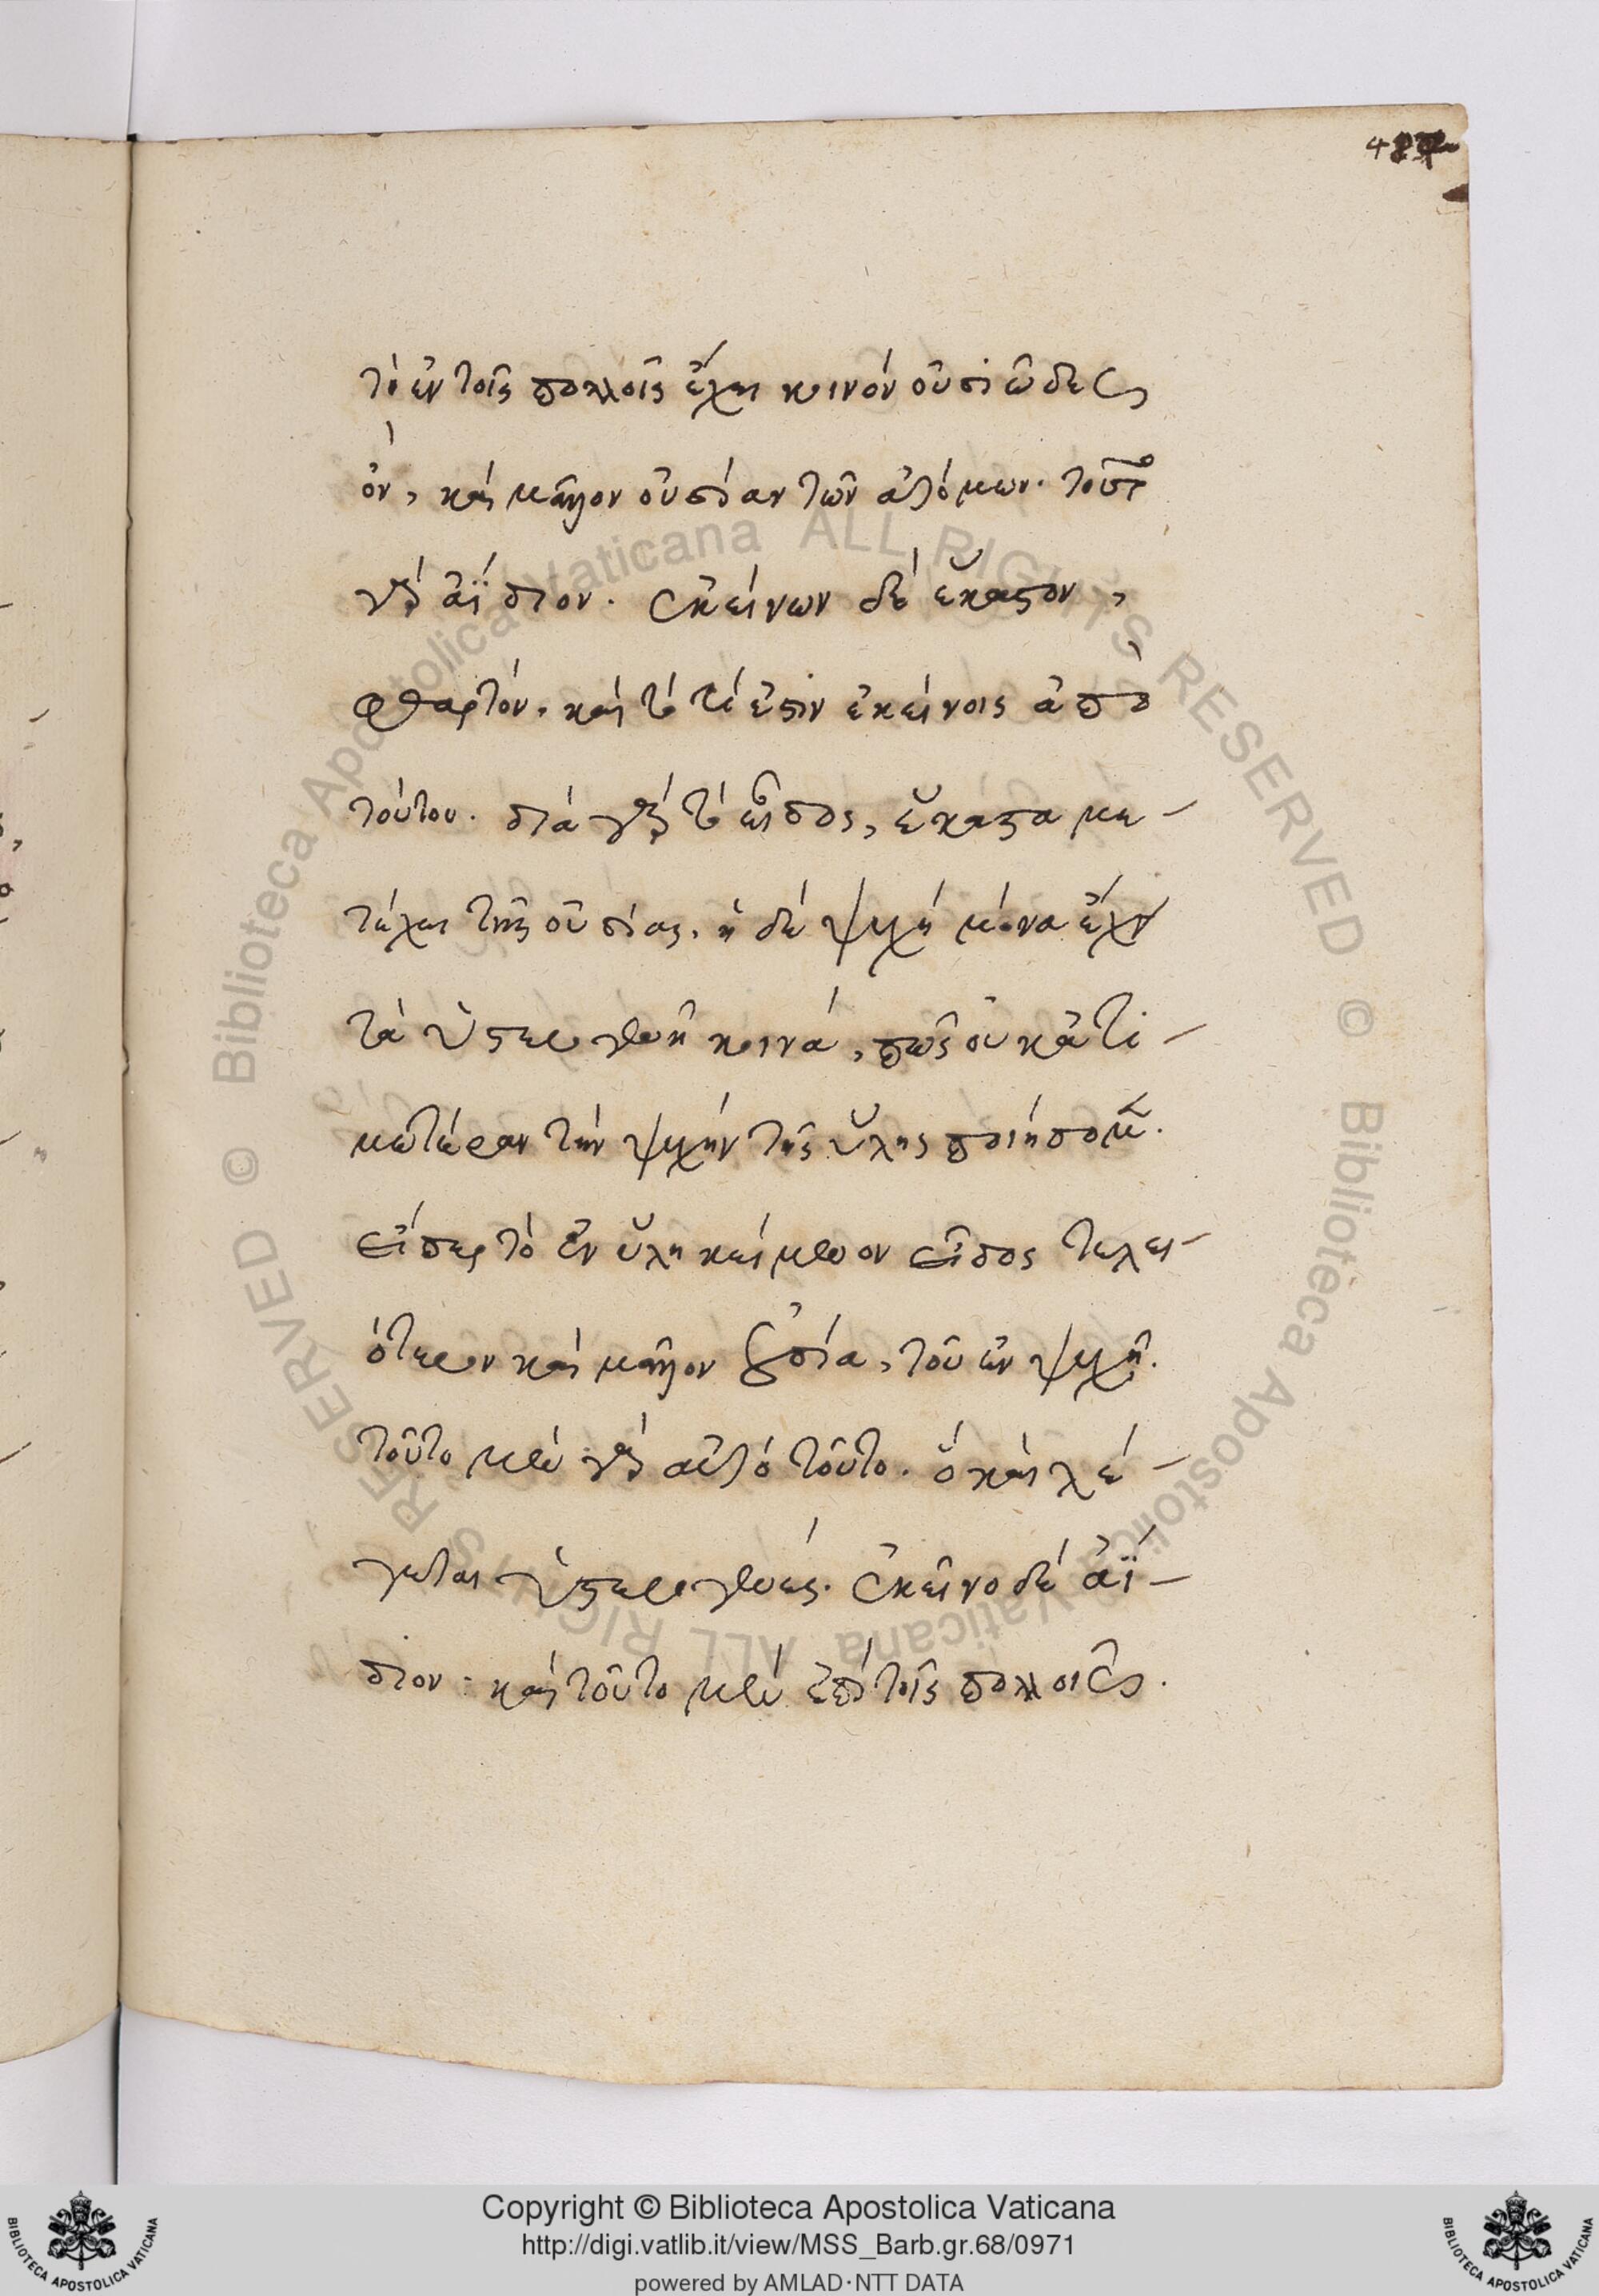 τὸ ἐν τοῖς πολλοῖς ἔχει κοινὸν οὐσιῶδες
ὂν, καὶ μᾶλλον οὐσίαν τῶν ἀτόμων. τοῦτο
γὰρ ἀΐδιον. ἐκείνων δὲ ἕκαστον,
φθαρτόν. καὶ τὸ τί ἐστιν ἐκείνοις ἀπὸ
τούτου. διὰ γὰρ τὸ εἶδος, ἕκαστα με-
τέχει τῆς οὐσίας. ἡ δὲ ψυχὴ μόνα ἔχει
τὰ ὑστερογενῆ κοινά, πῶς οὐκ ἀτι-
μωτέραν τὴν ψυχὴν τῆς ὕλης ποιήσομεν.
εἴπερ τὸ ἐν ὕλῃ κείμενον εἶδος τελει-
ότερον καὶ μᾶλλον οὐσία, τοῦ ἐν ψυχῇ.
τοῦτο μὲν γὰρ αὐτὸ τοῦτο. ὃ καὶ λέ-
γεται ὑστερογενές. ἐκεῖνο δὲ ἀΐ-
διον: καὶ τοῦτο μὲν ἐπὶ τοῖς πολλοῖς.
Copyright © Biblioteca Apostolica Vaticana
http://digi.vatlib.it/view/MSS_Barb.gr.68/0971
powered by AMLAD·NTT DATA
BIBLIOTECA APOSTOLICA VATICANA
BIBLIOTECA APOSTOLICA VATICANA
© Biblioteca Apostolica Vaticana ALL RIGHTS RESERVED
© Biblioteca Apostolica Vaticana ALL RIGHTS RESERVED